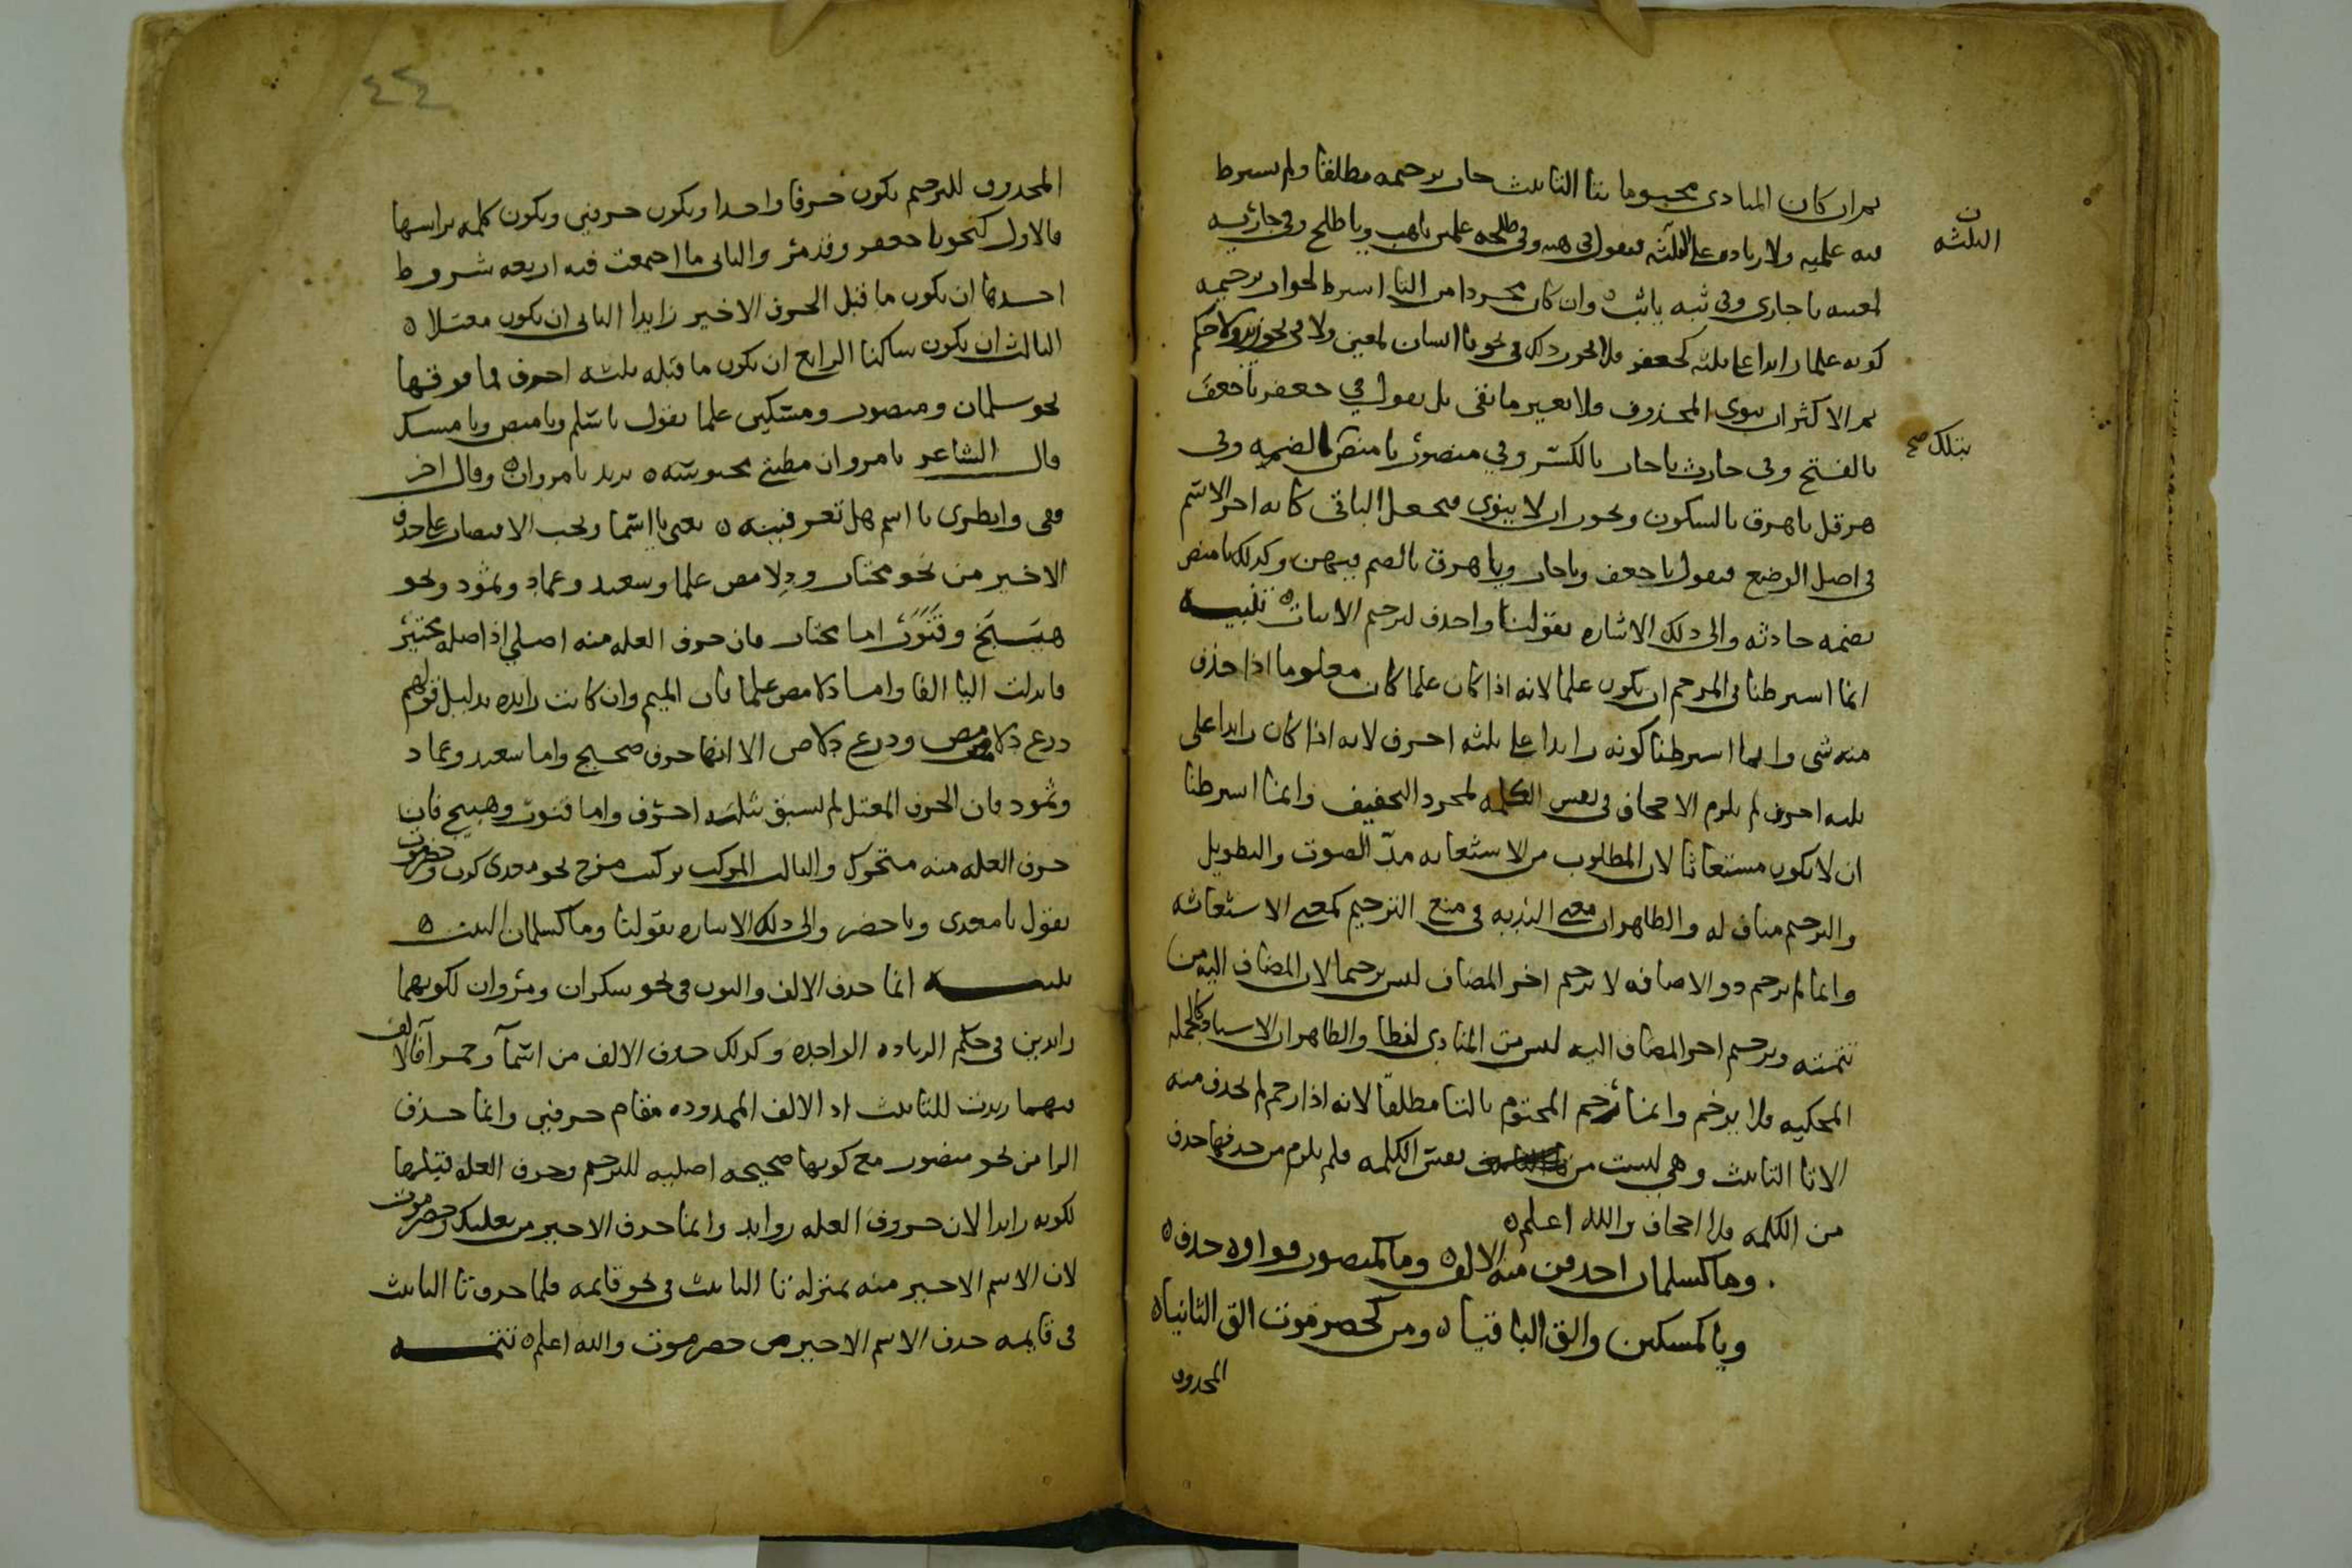 ثم ان كان المنادى مختوما بتا التانيث جاز ترخيمه مطلقا ولم يشترط
فيه علميه ولا زياده على الثلثه فتقول في هبه وفي طلحه علمين ياهب ويا طلح وفي جاريه
لمعينه يا جاري وفي ثبه ياثب ٥ وان كان مجردا من التا اشترط لجواز ترخيمه
كونه علما زايدا على ثلثه كجعفر فلا يجوز ذلك في نحو يا انسان لمعين ولا في نحو زيد ولا حكم
ثم الاكثر ان ينوى المحذوف فلا يغير ما بقى بل يقول في جعفر يا جعف
بالفتح وفي حارث يا حار بالكسر وفي منصور يا منص بالضمه وفي
هرقل يا هرق بالسكون ويجوز ان لا ينوى فيجعل الباقي كانه اخر الاسم
في اصل الوضع فيقول يا جعف ويا حار ويا هرق بالضم فيهن وكذلك يا منص
بضمه حادثه والى ذلك الاشاره بقولنا واحذف لترخيم الابيات ٥ تنبيه
انما اشترطنا في المرخم ان يكون علما لانه اذا كان علما كان معلوما اذا حذف
منه شى وانما اشترطنا كونه زايدا على ثلثه احرف لانه اذا كان زايدا على
ثلثه احرف لم يلزم الاجحاف في نفس الكلمه لمجرد التخفيف وانما اشترطنا
ان لا يكون مستغاثا لان المطلوب من الاستغاثه مد الصوت والتطويل
والترخيم مناف له والظاهر ان معنى الندبه في منع الترخيم كمعنى الاستغاثه
وانما لم يرخم ذو الاضافه لا ترخيم اخر المضاف ليس ترخيما لان المضاف اليه من
تتمته وترخيم اخر المضاف اليه ليس من المنادى لفظا والظاهر ان الاسناد كالجمله
المحكيه فلا يرخم وانما رخم المختوم بالتا مطلقا لانه اذا رخم لم يحذف منه
الا تا التانيث وهي ليست من نفس الكلمه فلم يلزم من حذفها حذف
من الكلمه فلا اجحاف والله اعلم ٥
وما كسلمان احذفن منه الالف ٥ وما كمنصور فواوه حذف ٥
ويا كمسكين والق الباقيا ٥ ومن كحضرموت الق الثانيا ٥
المحذوف
ن
الثلثه
بتلك صح
٤٤
المحذوف للترخيم يكون حرفا واحدا ويكون حرفين ويكون كلمه براسها
فالاول كنحو يا جعفر وقد مر والثاني ما اجتمعت فيه اربعه شروط
احدها ان يكون ما قبل الحرف الاخير زايدا الثاني ان يكون معتلا ٥
الثالث ان يكون ساكنا الرابع ان يكون ما قبله ثلثه احرف فما فوقها
نحو سلمان ومنصور ومسكين علما يقول يا سلم ويا منص ويا مسك
قال الشاعر يا مرو ان مطيتي محبوسه ٥ يريد يا مروان ٥ وقال اخر
قفى وانظرى يا اسم هل تعرفينه ٥ يعنى يا اسما ويجب الاقتصار على حذف
الاخير من نحو مختار ودلامص علما وسعيد وعماد وثمود ونحو
هبيخ وقنور اما مختار فان حرف العله منه اصلي اذ اصله مختير
فابدلت اليا الفا واما دلامص علما فان الميم وان كانت زايده بدليل قولهم
درع دلامص ودرع دلاص الا انها حرف صحيح واما سعيد وعماد
وثمود فان الحرف المعتل لم يسبق بثلثه احرف واما قنور وهبيخ فان
حرف العله منه متحرك والثالث المركب تركيب مزج نحو معدى كرب وحضرموت
يقول يا معدى ويا حضر والى ذلك الاشاره بقولنا وما كسلمان البيت ٥
تنبيه انما حذف الالف والنون في نحو سكران ومروان لكونهما
زايدين في حكم الزياده الواحده وكذلك حذف الالف من اسمآ وحمرآ فالالف
فيهما زيدت للتانيث اذ الالف الممدوده مقام حرفين وانما حذف
الرا من نحو منصور مع كونها صحيحه اصليه للترخيم وحرف العله قبلها
لكونه زايدا لان حروف العله زوايد وانما حذف الاخير من بعلبك وحضرموت
لان الاسم الاخير منه بمنزله تا التانيث في نحو قايمه فلما حذف تا التانيث
في قايمه حذف الاسم الاخير من حضرموت والله اعلم ٥ تتمه